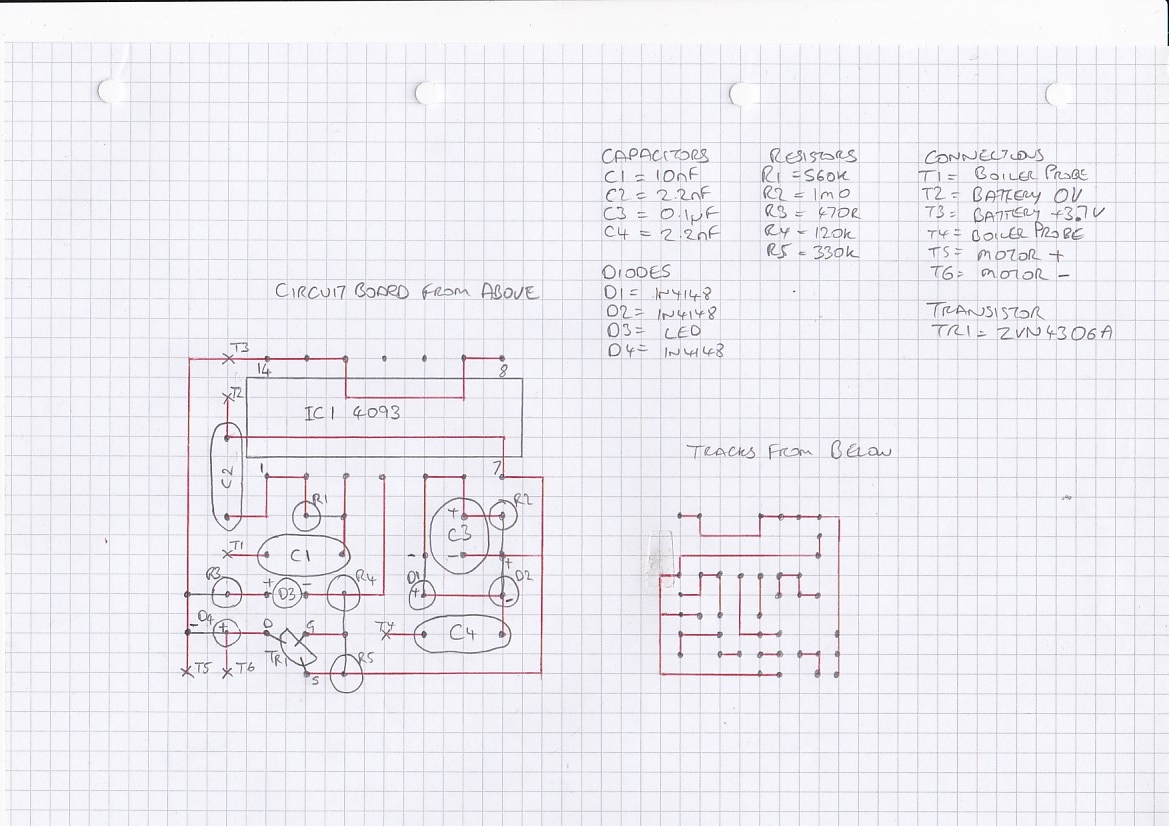 CAPACITORS
C1 = 10nF
C2 = 2.2nF
C3 = 0.1µF
C4 = 2.2nF
RESISTORS
R1 = 560K
R2 = 1M0
R3 = 470R
R4 = 120K
R5 = 330K
CONNECTIONS
T1 = BOILER PROBE
T2 = BATTERY 0V
T3 = BATTERY +3.7V
T4 = BOILER PROBE
T5 = MOTOR +
T6 = MOTOR -
DIODES
D1 = 1N4148
D2 = 1N4148
D3 = LED
D4 = 1N4148
TRANSISTOR
TR1 = ZVN4306A
CIRCUIT BOARD FROM ABOVE
T3
14
8
T2
IC1 4093
C2
1
7
R1
+
R2
C3
T1
C1
-
-
+
R3
+
D3
-
R4
D1
+
D2
-
D4
-
+
D
G
TR1
S
T4
C4
T5
T6
R5
TRACKS FROM BELOW